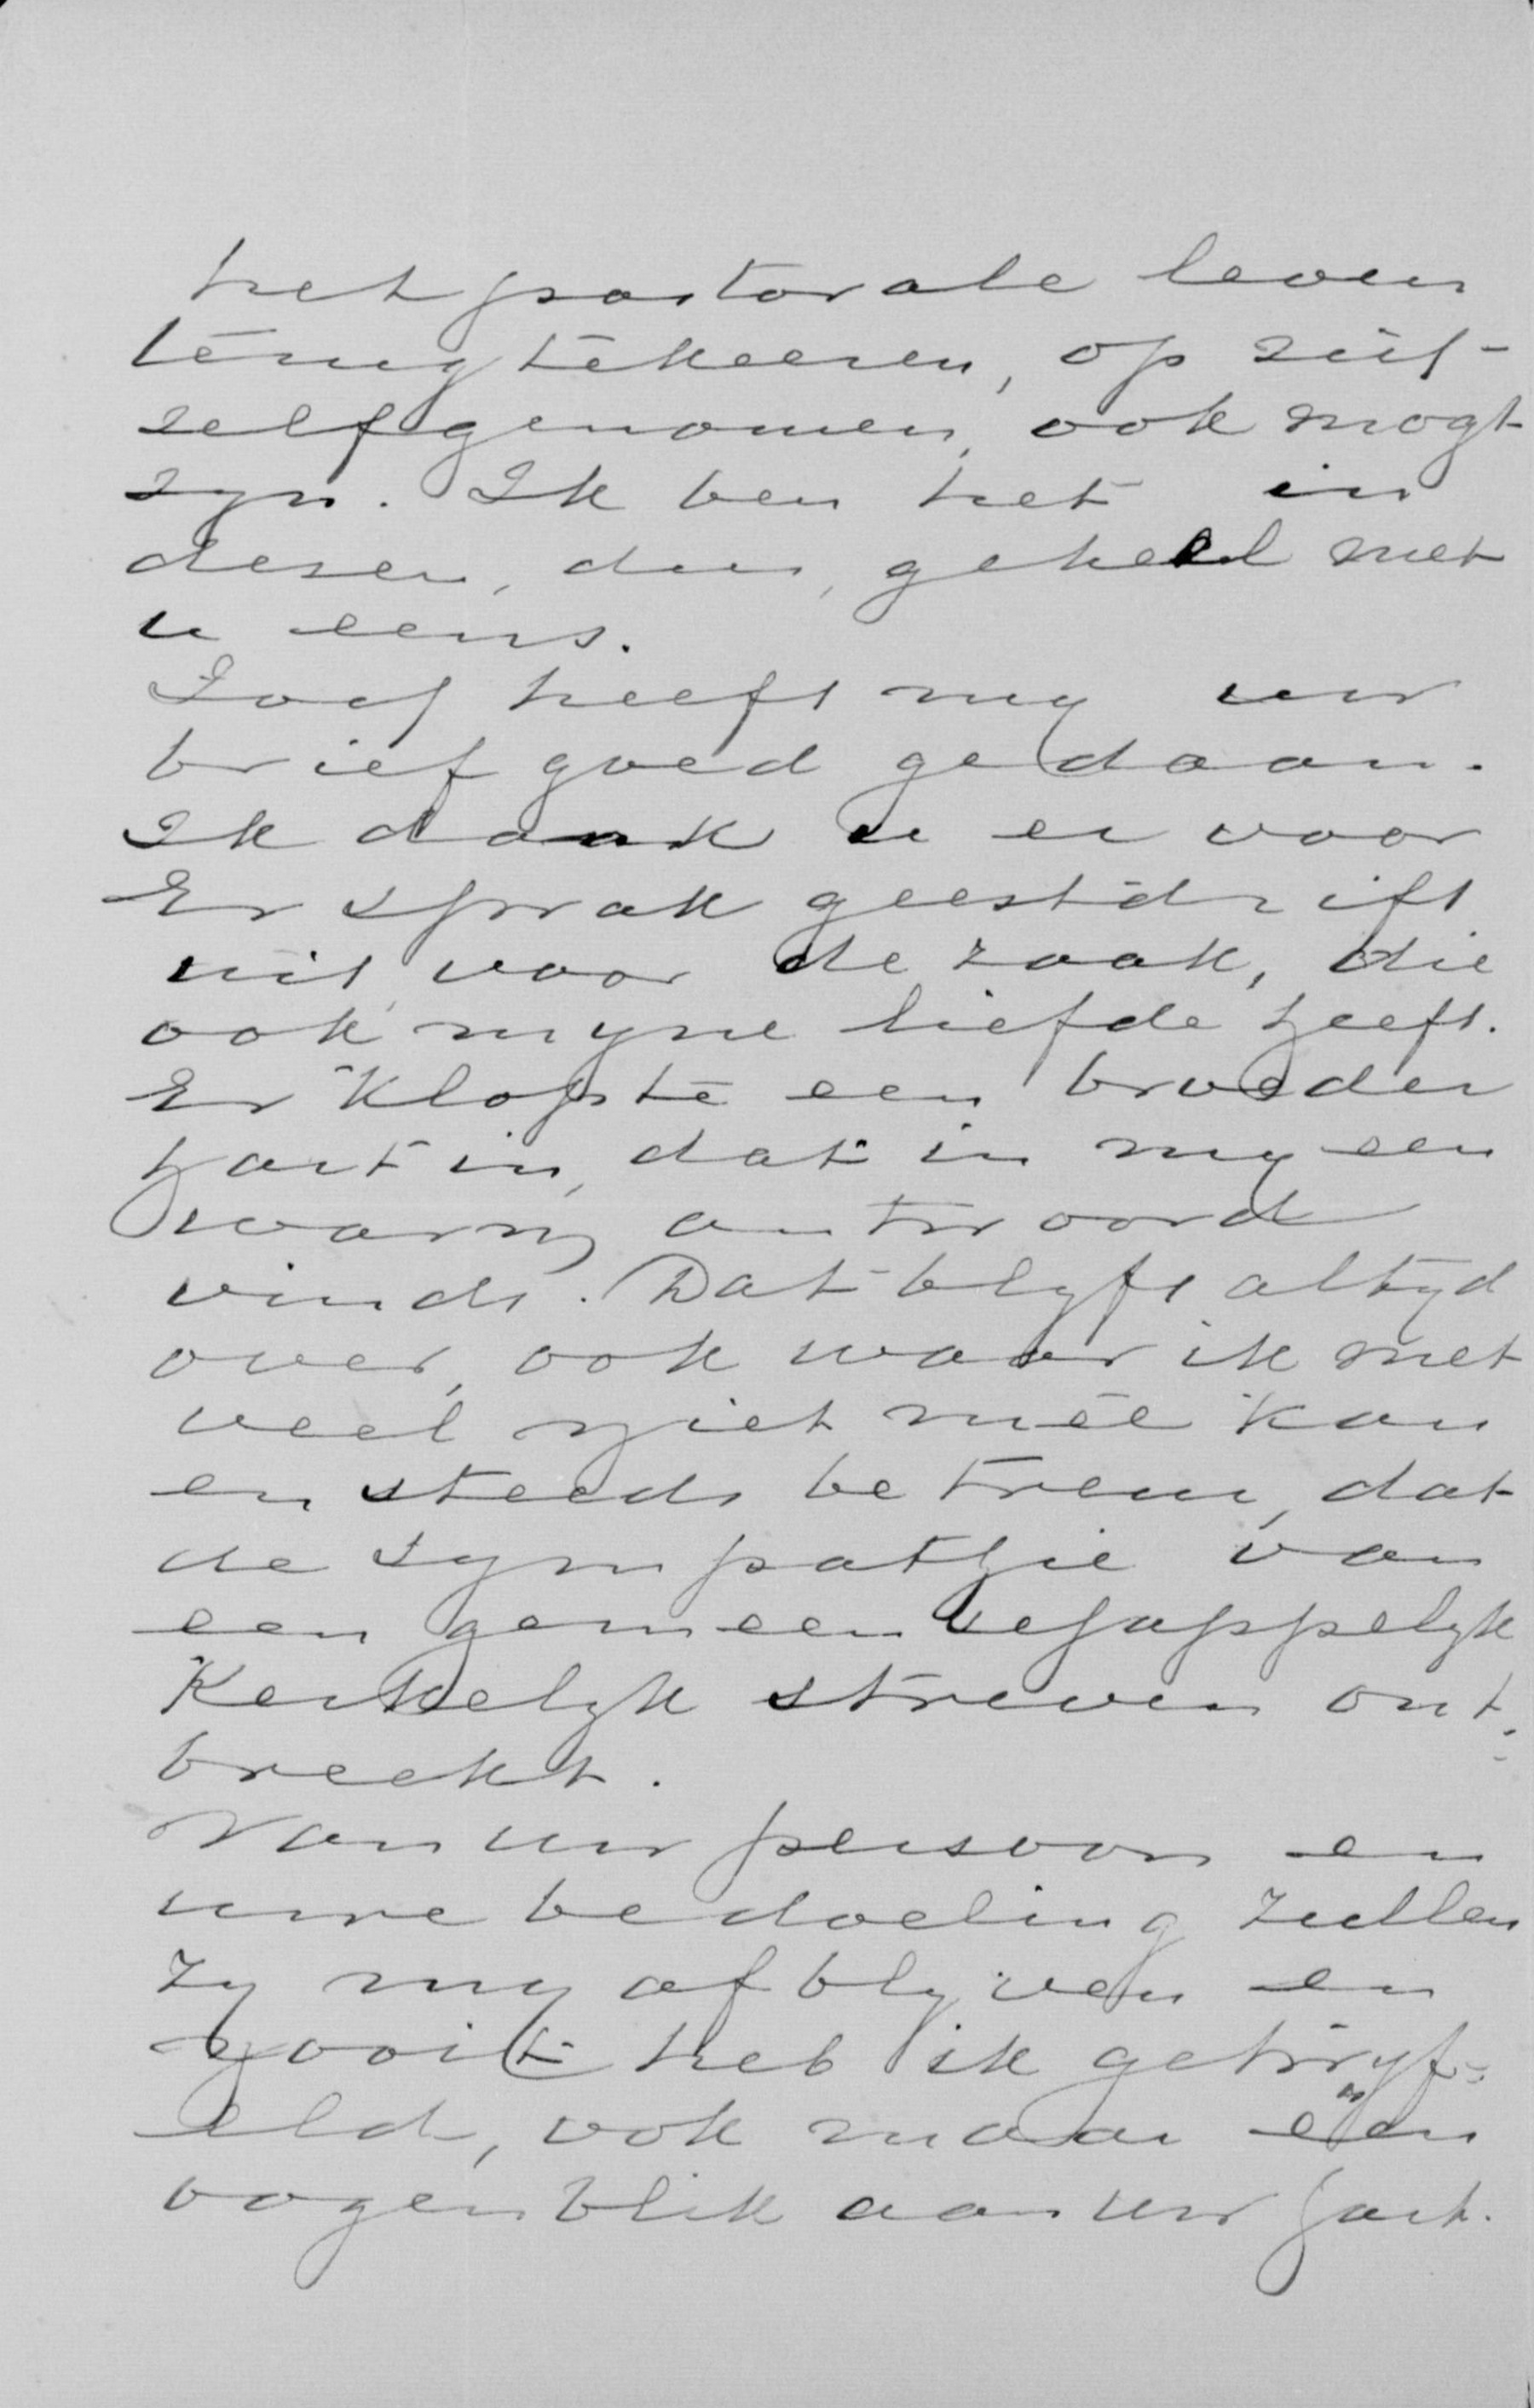 het pastorale leven
terug tekeeren, op zich-
zelf genomen, ook mogt
zyn. Ik ben het in
dezen, dus, geheel met
u eens.
Toch heeft my uw
brief goed gedaan.
Ik dank u er voor
Er sprak geestdrift
uit voor de zaak, die
ook myne liefde heeft.
Er klopte een broeder
hart in, dat in my een
warm antwoord
vindt. Dat blyft altyd
over, ook waar ik met
veel niet meê kan
en steeds betreur, dat
de sympathie van
een gemeenschappelyk
Kerkelyk streven ont-
breekt.
Van uw persoon en
uwe bedoeling zullen
zy my afblyven en
nooit heb ik getwyf-
eld, ook maar één
oogenblik aan uw hart.